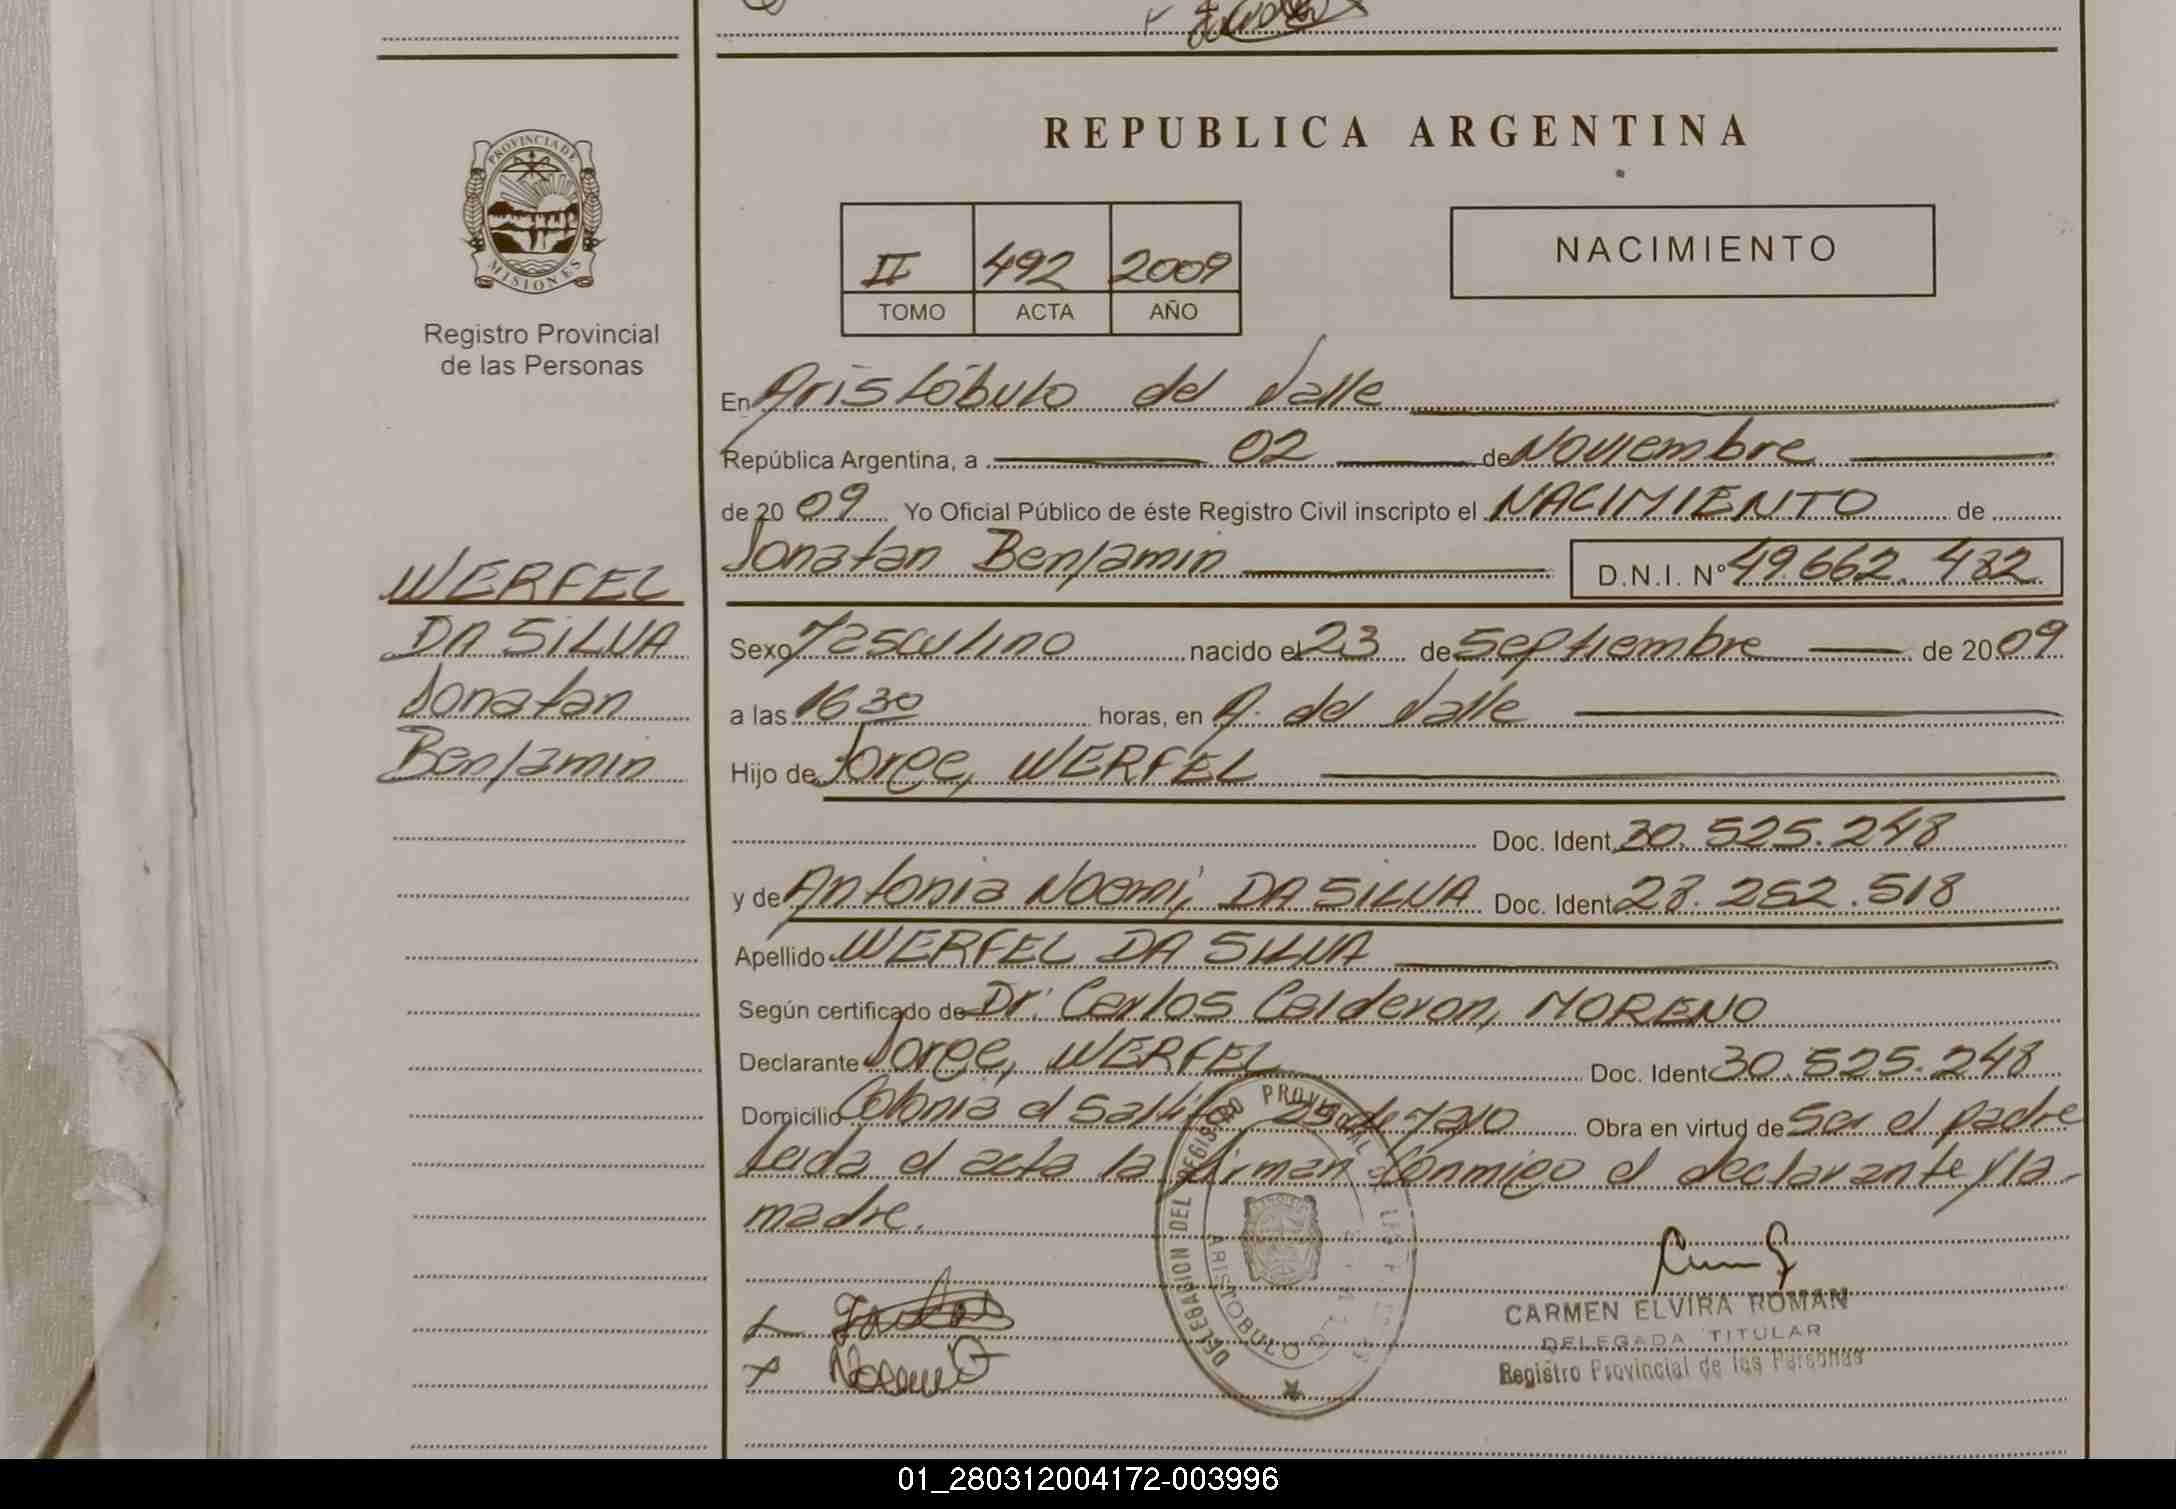 REPUBLICA ARGENTINA
PROVINCIA DE
MISIONES
Registro Provincial
de las Personas
II 492 2009
TOMO ACTA AÑO
NACIMIENTO
En Aristóbulo del Valle
República Argentina, a 02 de Noviembre
de 20 09 Yo Oficial Público de éste Registro Civil inscripto el NACIMIENTO de
Jonatan Benjamin D.N.I. Nº 49.662.432
WERFEL
DA SILVA
Jonatan
Benjamin
Sexo Masculino nacido el 23 de Septiembre de 20 09
a las 16 30 horas, en A. del Valle
Hijo de Jorge, WERFEL
Doc. Ident. 30.525.248
y de Antonia Noemí, DA SILVA Doc. Ident. 28.252.518
Apellido WERFEL DA SILVA
Según certificado de Dr. Carlos Calderon, MORENO
Declarante Jorge, WERFEL Doc. Ident. 30.525.248
Domicilio Colonia el Saltito 25 de Mayo Obra en virtud de Ser el padre
Leida el acta la firman Conmigo el declarante y la
madre.
DELEGACION DEL REGISTRO PROVINCIAL DE LAS
ARISTOBULO
CARMEN ELVIRA ROMAN
DELEGADA TITULAR
Registro Provincial de las Personas
01_280312004172-003996